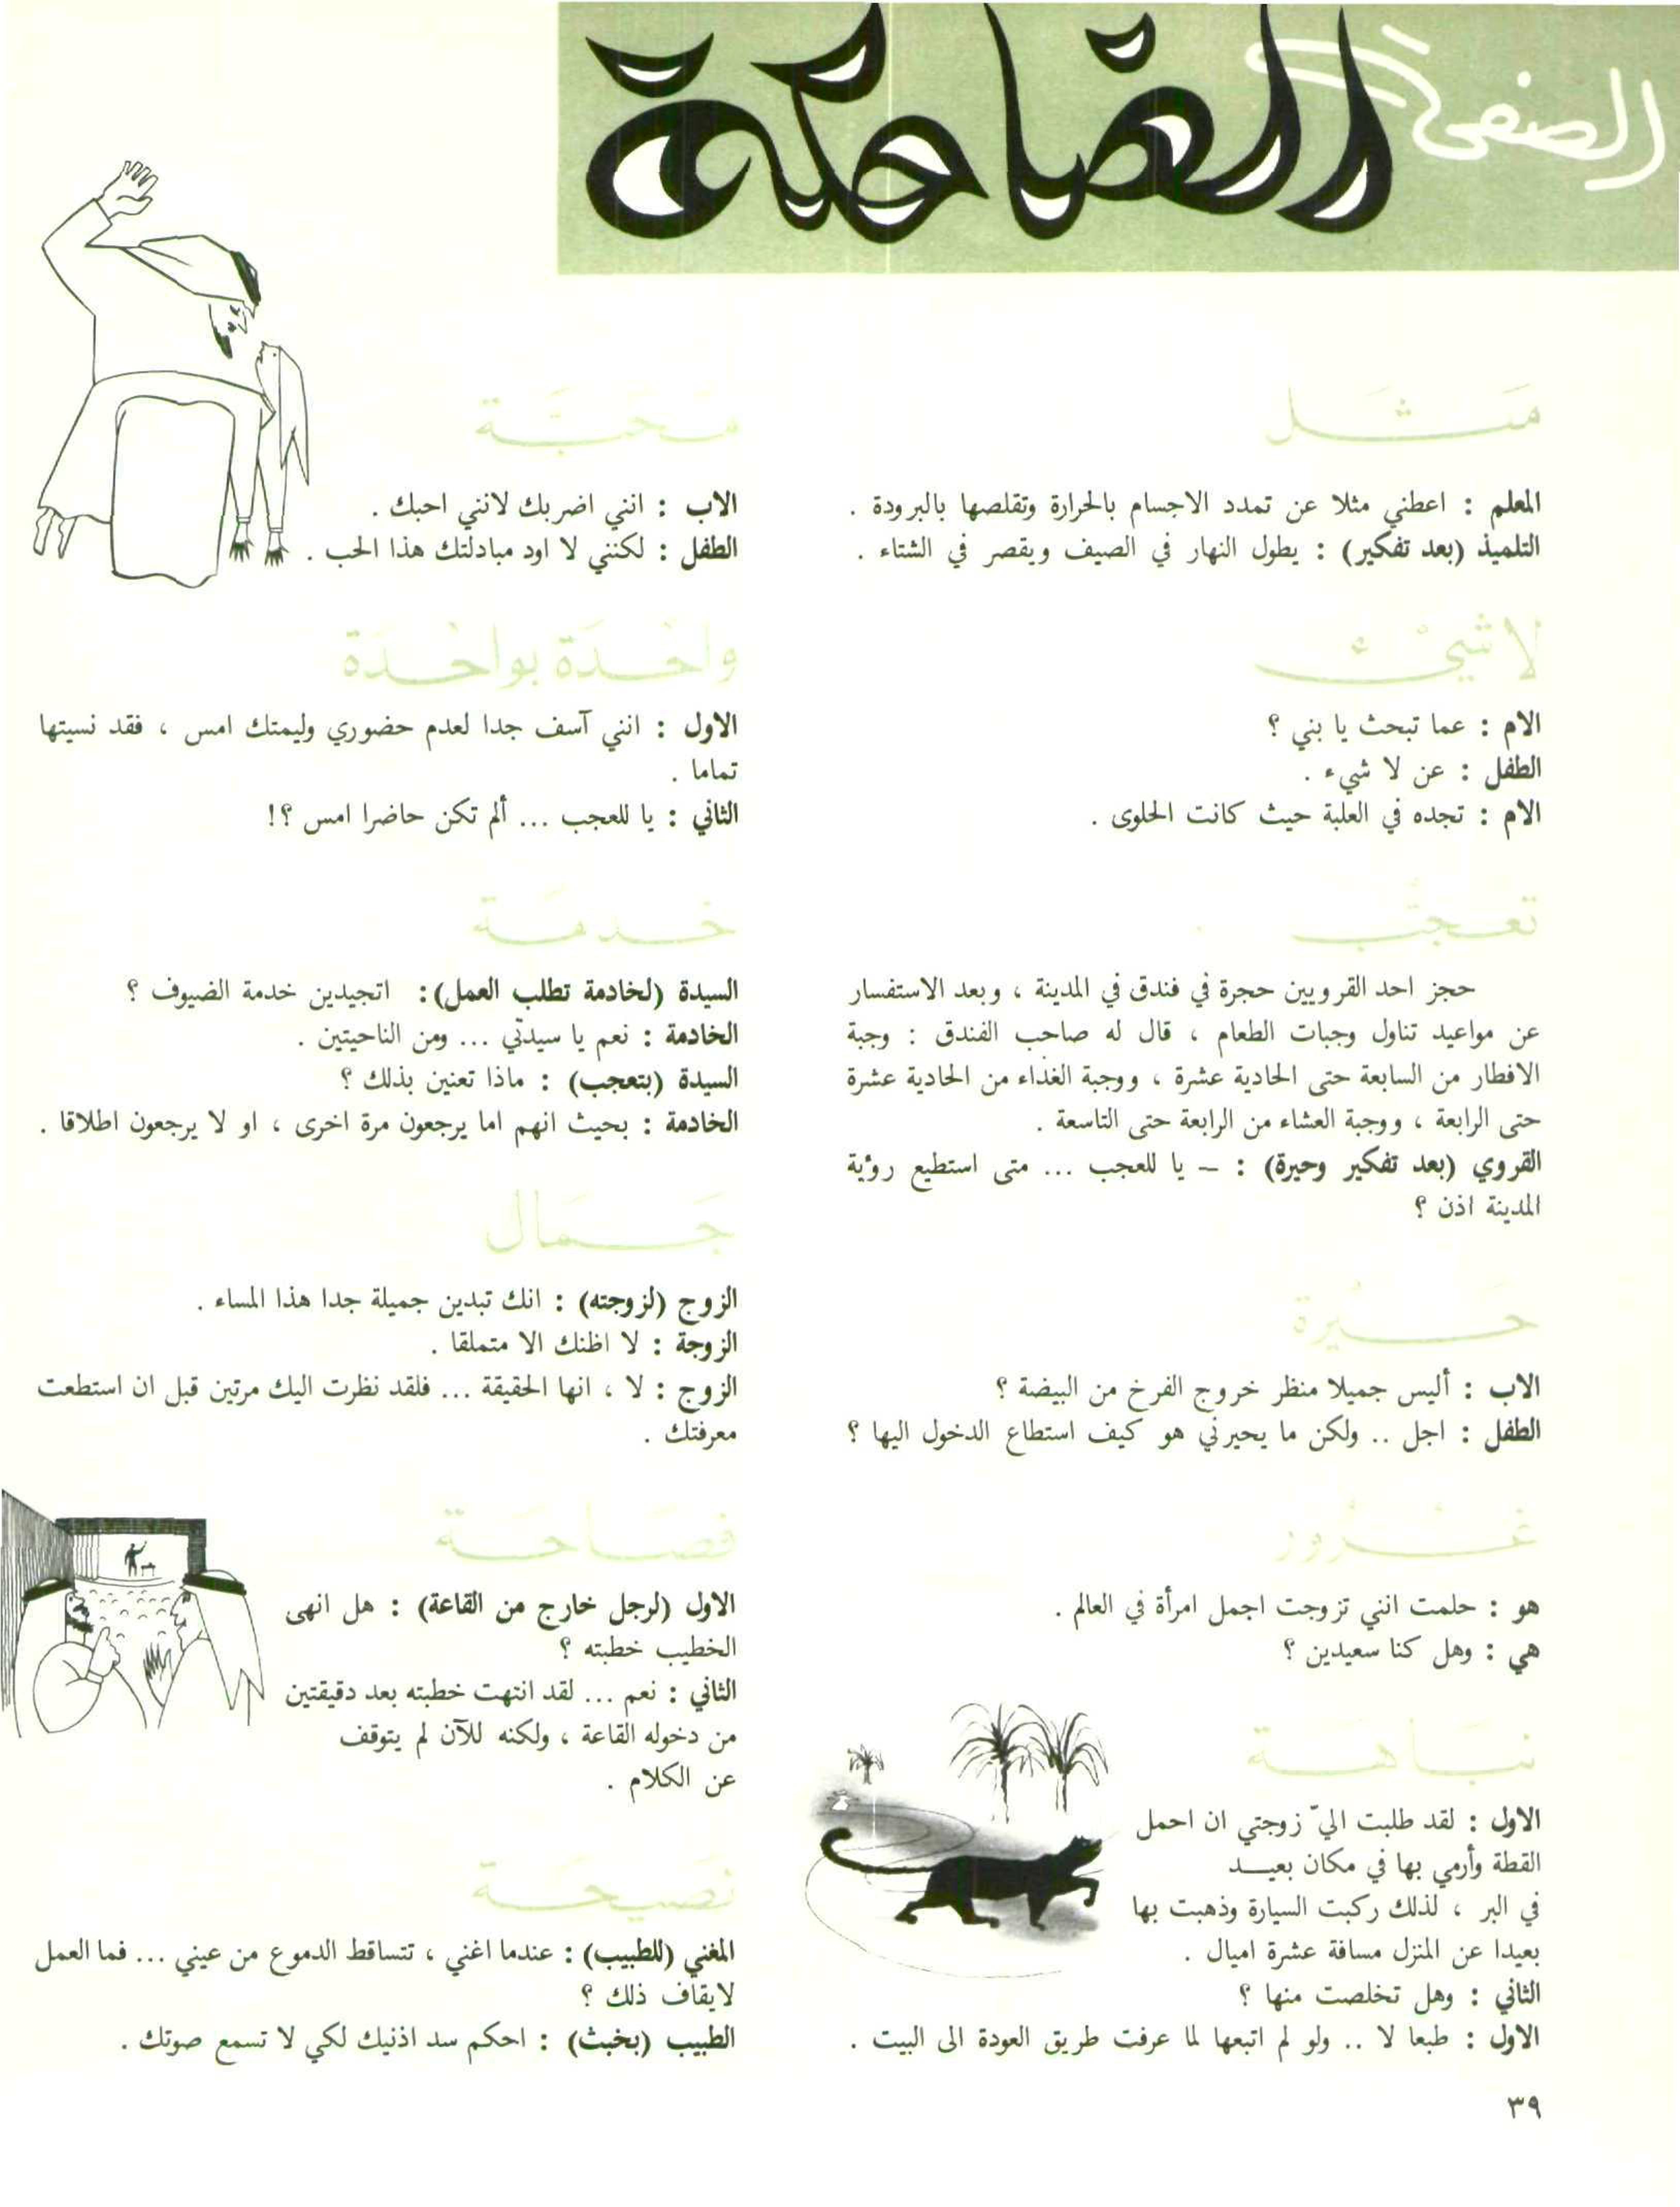 الصفحة الضاحكة
مثل
المعلم : اعطني مثلا عن تمدد الاجسام بالحرارة وتقلصها بالبرودة .
التلميذ (بعد تفكير) : يطول النهار في الصيف ويقصر في الشتاء .
لا شيء
الام : عما تبحث يا بني ؟
الطفل : عن لا شيء .
الام : تجده في العلبة حيث كانت الحلوى .
تعجب
حجز احد القرويين حجرة في فندق في المدينة ، وبعد الاستفسار
عن مواعيد تناول وجبات الطعام ، قال له صاحب الفندق : وجبة
الافطار من السابعة حتى الحادية عشرة ، ووجبة الغذاء من الحادية عشرة
حتى الرابعة ، ووجبة العشاء من الرابعة حتى التاسعة .
القروي (بعد تفكير وحيرة) : – يا للعجب ... متى استطيع رؤية
المدينة اذن ؟
حيرة
الاب : أليس جميلا منظر خروج الفرخ من البيضة ؟
الطفل : اجل .. ولكن ما يحيرني هو كيف استطاع الدخول اليها ؟
غرور
هو : حلمت انني تزوجت اجمل امرأة في العالم .
هي : وهل كنا سعيدين ؟
نباهة
الاول : لقد طلبت اليّ زوجتي ان احمل
القطة وأرمي بها في مكان بعيــد
في البر ، لذلك ركبت السيارة وذهبت بها
بعيدا عن المنزل مسافة عشرة اميال .
الثاني : وهل تخلصت منها ؟
الاول : طبعا لا .. ولو لم اتبعها لما عرفت طريق العودة الى البيت .
محبة
الاب : انني اضربك لانني احبك .
الطفل : لكنني لا اود مبادلتك هذا الحب .
واحدة بواحدة
الاول : انني آسف جدا لعدم حضوري وليمتك امس ، فقد نسيتها
تماما .
الثاني : يا للعجب ... ألم تكن حاضرا امس ؟!
خدمة
السيدة (لخادمة تطلب العمل): اتجيدين خدمة الضيوف ؟
الخادمة : نعم يا سيدتي ... ومن الناحيتين .
السيدة (بتعجب) : ماذا تعنين بذلك ؟
الخادمة : بحيث انهم اما يرجعون مرة اخرى ، او لا يرجعون اطلاقا .
جمال
الزوج (لزوجته) : انك تبدين جميلة جدا هذا المساء .
الزوجة : لا اظنك الا متملقا .
الزوج : لا ، انها الحقيقة ... فلقد نظرت اليك مرتين قبل ان استطعت
معرفتك .
فصاحة
الاول (لرجل خارج من القاعة) : هل انهى
الخطيب خطبته ؟
الثاني : نعم ... لقد انتهت خطبته بعد دقيقتين
من دخوله القاعة ، ولكنه للآن لم يتوقف
عن الكلام .
نصيحة
المغني (للطبيب) : عندما اغني ، تتساقط الدموع من عيني ... فما العمل
لايقاف ذلك ؟
الطبيب (بخبث) : احكم سد اذنيك لكي لا تسمع صوتك .
٣٩